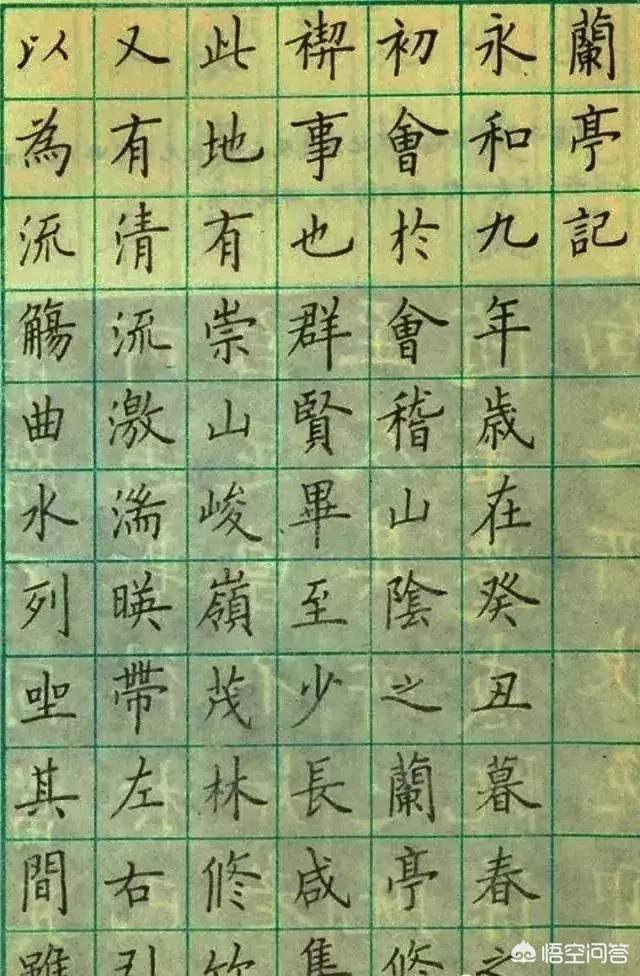 蘭亭記
永和九年歳在癸丑暮春之
初會於會稽山陰之蘭亭脩
禊事也群賢畢至少長咸集
此地有崇山峻嶺茂林脩竹
又有清流激湍暎帶左右引
以為流觴曲水列坐其間雖
悟空问答